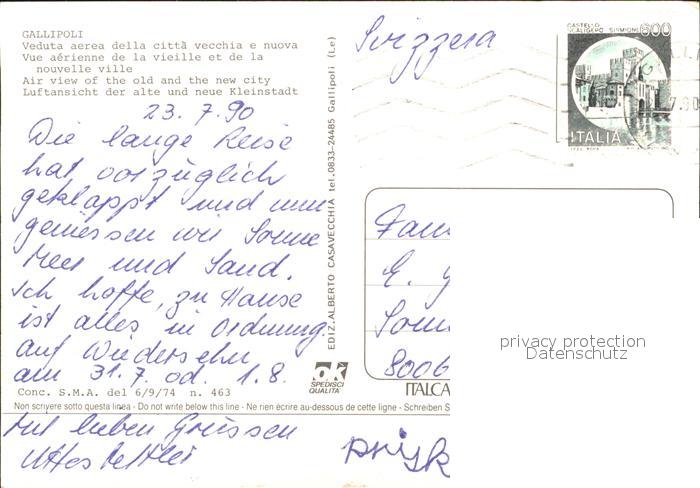 GALLIPOLI
Veduta aerea della città vecchia e nuova
Vue aérienne de la vieille et de la
nouvelle ville
Air view of the old and the new city
Luftansicht der alte und neue Kleinstadt
23. 7. 90
Die lange Reise
hat vorzüglich
geklappt und nun
geniessen wir Sonne
Meer und Sand.
Ich hoffe, zu Hause
ist alles in Ordnung.
Auf Wiedersehn
am 31. 7. od. 1. 8.
Conc. S.M.A. del 6/9/74 n. 463
Non scrivere sotto questa linea - Do not write below this line - Ne rien écrire au-dessous de cette ligne - Schreiben S
Mit lieben Grüssen
EDIZ. ALBERTO CASAVECCHIA tel. 0833-24485 Gallipoli (Le)
ok
SPEDISCI
QUALITA'
Svizzera
CASTELLO
SCALIGERO SIRMIONE
600
ITALIA
7.90
Fam
E. g
Sonn
8006
ITALCA
privacy protection
Datenschutz